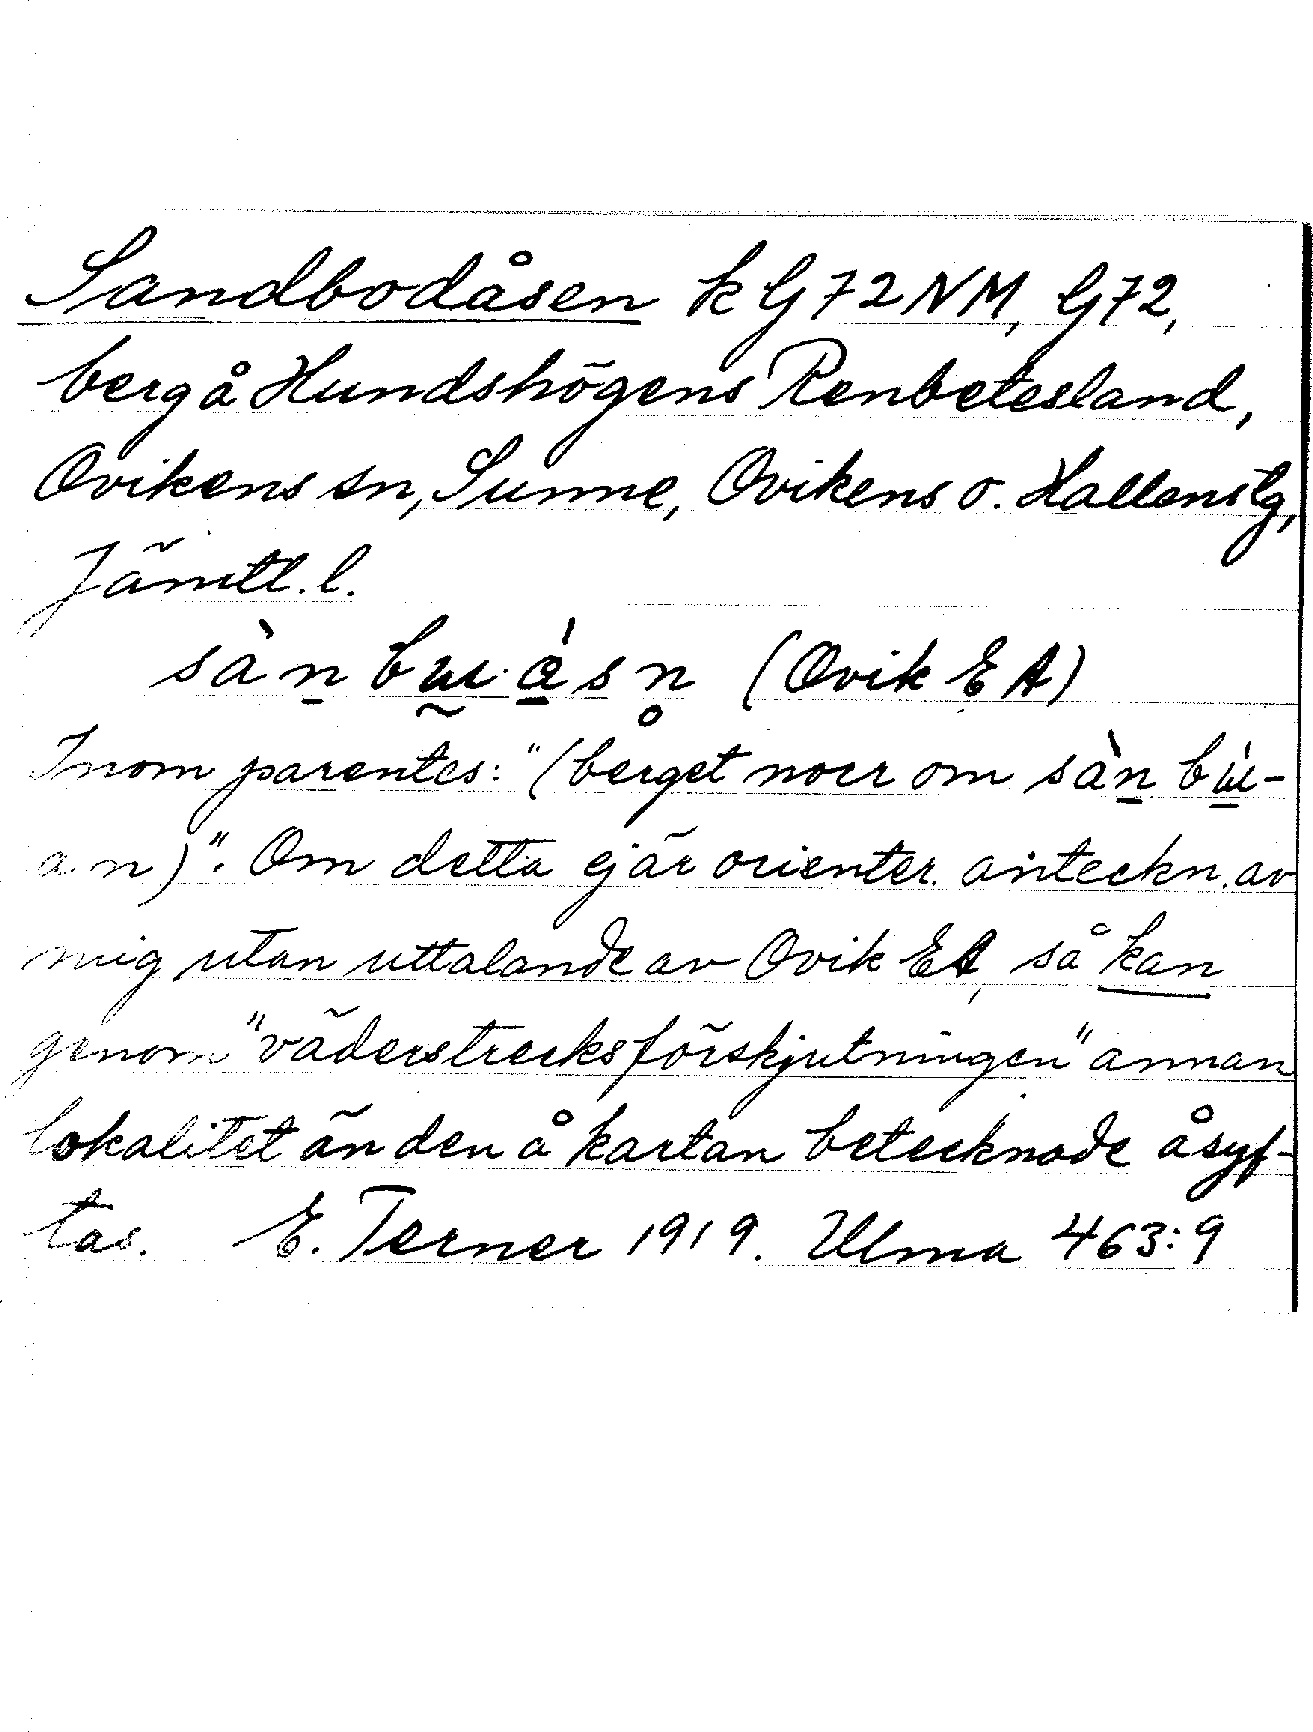 Sandbodåsen k G72NM, G72,
berg å Hundshögens Renbetesland,
Ovikens sn, Sunne, Ovikens o. Hallens tg,
Jämtl. l.
sàn bɯ·å̀sn̥ (Ovik EA)
Inom parentes: "(berget norr om sàn bɯ̀-
an)". Om detta ej är orienter. anteckn. av
mig utan uttalande av Ovik EA, så kan
genom "väderstrecksförskjutningen" annan
lokalitet än den å kartan betecknade åsyf-
tas. E. Terner 1919. Ulma 463:9